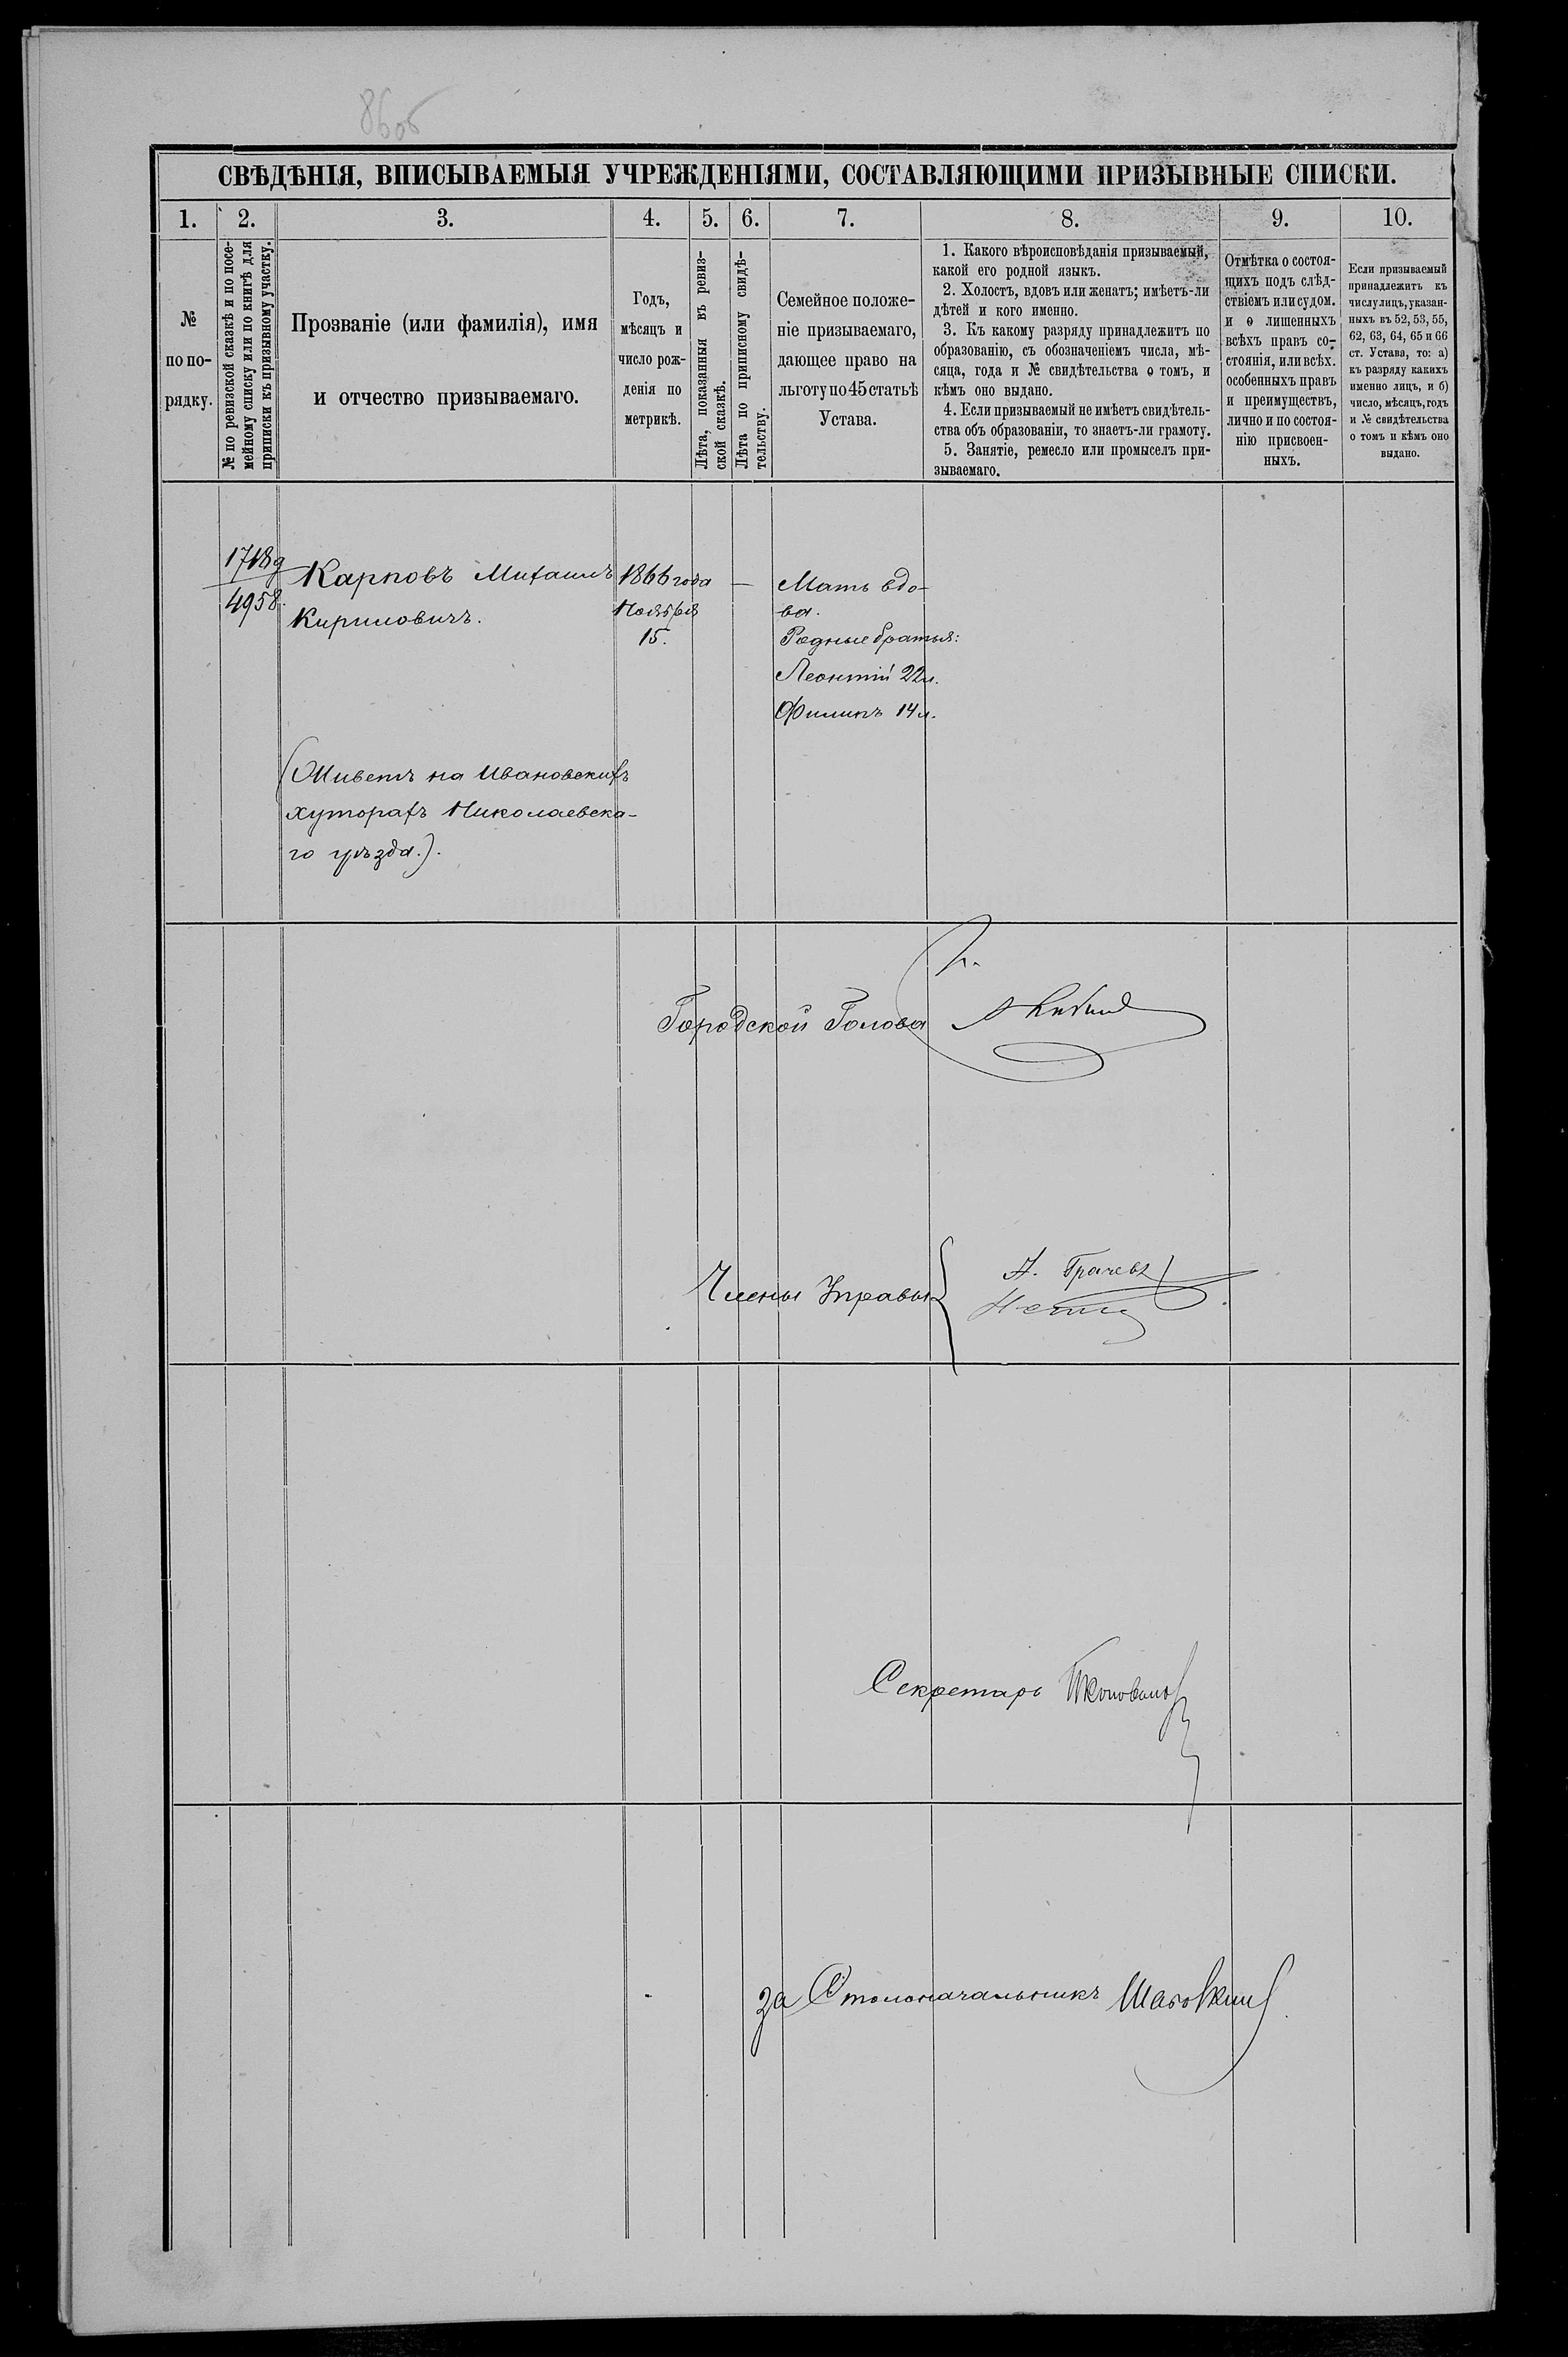 86об
СВѢДѢНІЯ, ВПИСЫВАЕМЫЯ УЧРЕЖДЕНІЯМИ, СОСТАВЛЯЮЩИМИ ПРИЗЫВНЫЕ СПИСКИ.
1. 2. 3. 4. 5. 6. 7. 8. 9. 10.
№
по по-
рядку.
№ по ревизской сказкѣ и по посе-
мейному списку или по книгѣ для
приписки къ призывному участку.
Прозваніе (или фамилія), имя
и отчество призываемаго.
Годъ,
мѣсяцъ и
число рож-
денія по
метрикѣ.
Лѣта, показанныя въ ревиз-
ской сказкѣ.
Лѣта по приписному свидѣ-
тельству.
Семейное положе-
ніе призываемаго,
дающее право на
льготу по 45 статьѣ
Устава.
1. Какого вѣроисповѣданія призываемый,
какой его родной языкъ.
2. Холостъ, вдовъ или женатъ; имѣетъ-ли
дѣтей и кого именно.
3. Къ какому разряду принадлежитъ по
образованію, съ обозначеніемъ числа, мѣ-
сяца, года и № свидѣтельства о томъ, и
кѣмъ оно выдано.
4. Если призываемый не имѣетъ свидѣтель-
ства объ образованіи, то знаетъ-ли грамоту.
5. Занятіе, ремесло или промыселъ при-
зываемаго.
Отмѣтка о состоя-
щихъ подъ слѣд-
ствіемъ или судом.
и о лишенныхъ
всѣхъ правъ со-
стоянія, или всѣх.
особенныхъ правъ
и преимуществъ,
лично и по состоя-
нію присвоен-
ныхъ.
Если призываемый
принадлежитъ къ
числу лицъ, указан-
ныхъ въ 52, 53, 55,
62, 63, 64, 65 и 66
ст. Устава, то: а)
къ разряду какихъ
именно лицъ, и б)
число, мѣсяцъ, годъ
и № свидѣтельства
о томъ и кѣмъ оно
выдано.
1718д
4958.
Карповъ Михаилъ
Кириловичъ.
1866 года
Ноября
15.
—
Мать вдо-
ва.
Родные братья:
Леонтій 22 л.
Филипъ 14 л.
(Живетъ на Ивановскихъ
хуторахъ Николаевска-
го уѣзда.).
Городской Голова
Члены Управы
А. Грачевъ
Секретарь
За Столоначальникъ